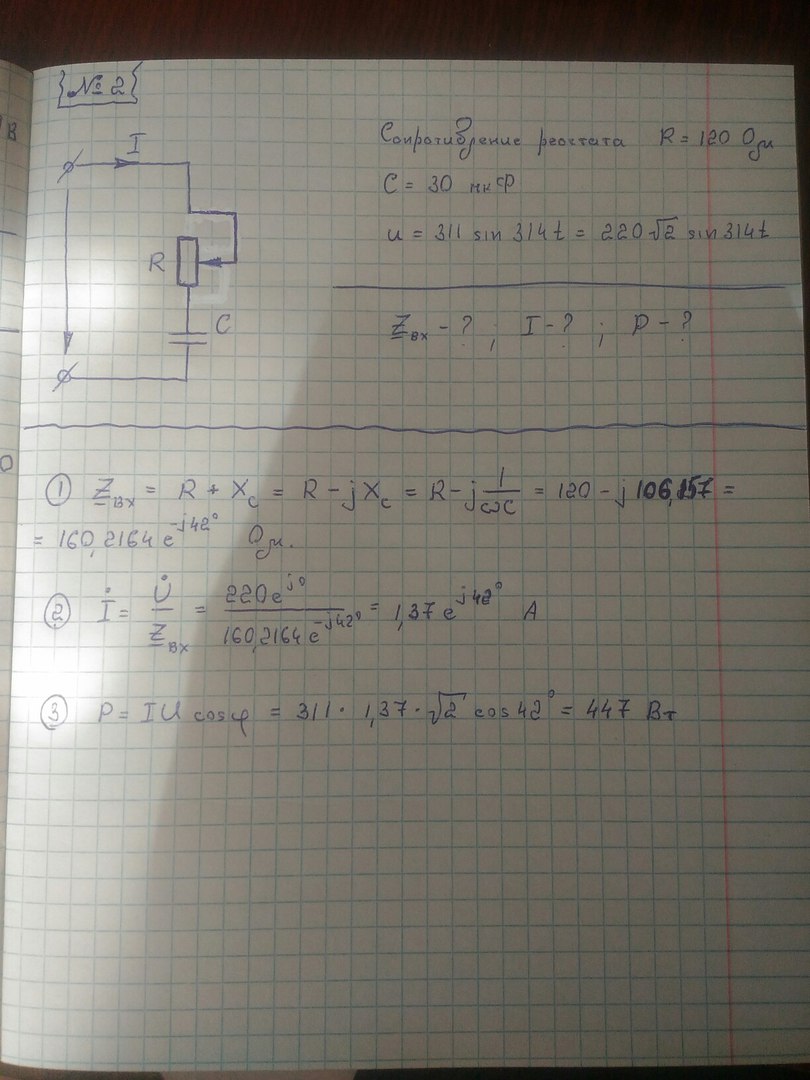 № 2
Сопротивление реостата R = 120 Ом
I
C = 30 мкФ
u = 311 sin 314t = 220√2 sin 314t
R
C
Z_вх - ? ; I - ? ; P - ?
① Z_вх = R + X_C = R - jX_C = R - j 1/ωC = 120 - j 106,157 =
= 160,2164 e^(-j42°) Ом.
② İ = U̇/Z_вх = 220e^(j0)/160,2164 e^(-j42°) = 1,37 e^(j42°) А
③ P = IU cosφ = 311 · 1,37 · √2 cos 42° = 447 Вт